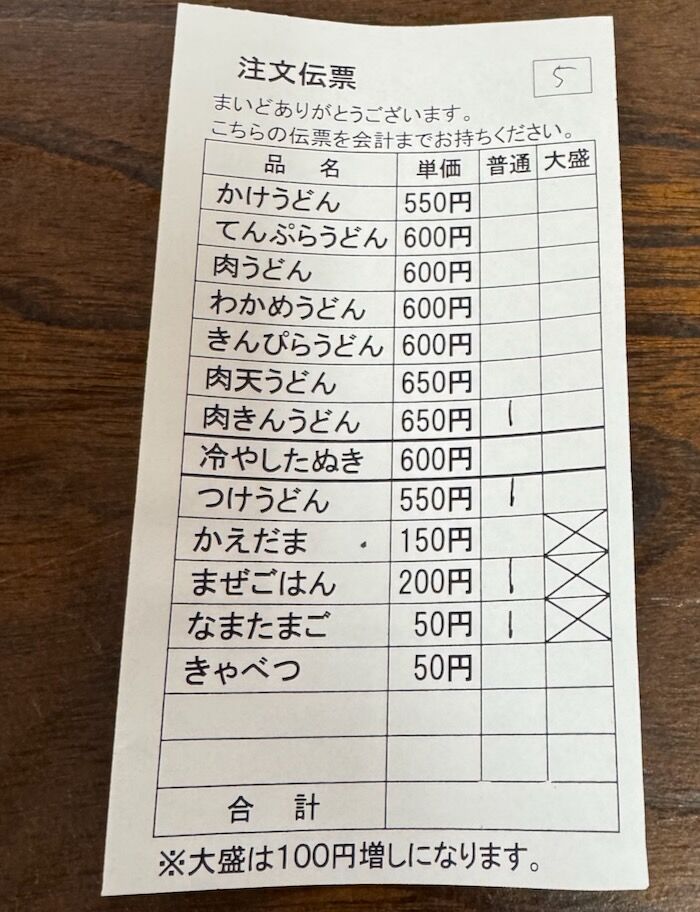 注文伝票 5
まいどありがとうございます。
こちらの伝票を会計までお持ちください。
品 名 単価 普通 大盛
かけうどん 550円
てんぷらうどん 600円
肉うどん 600円
わかめうどん 600円
きんぴらうどん 600円
肉天うどん 650円
肉きんうどん 650円 |
冷やしたぬき 600円
つけうどん 550円 |
かえだま 150円
まぜごはん 200円 |
なまたまご 50円 |
きゃべつ 50円
合 計
※大盛は100円増しになります。